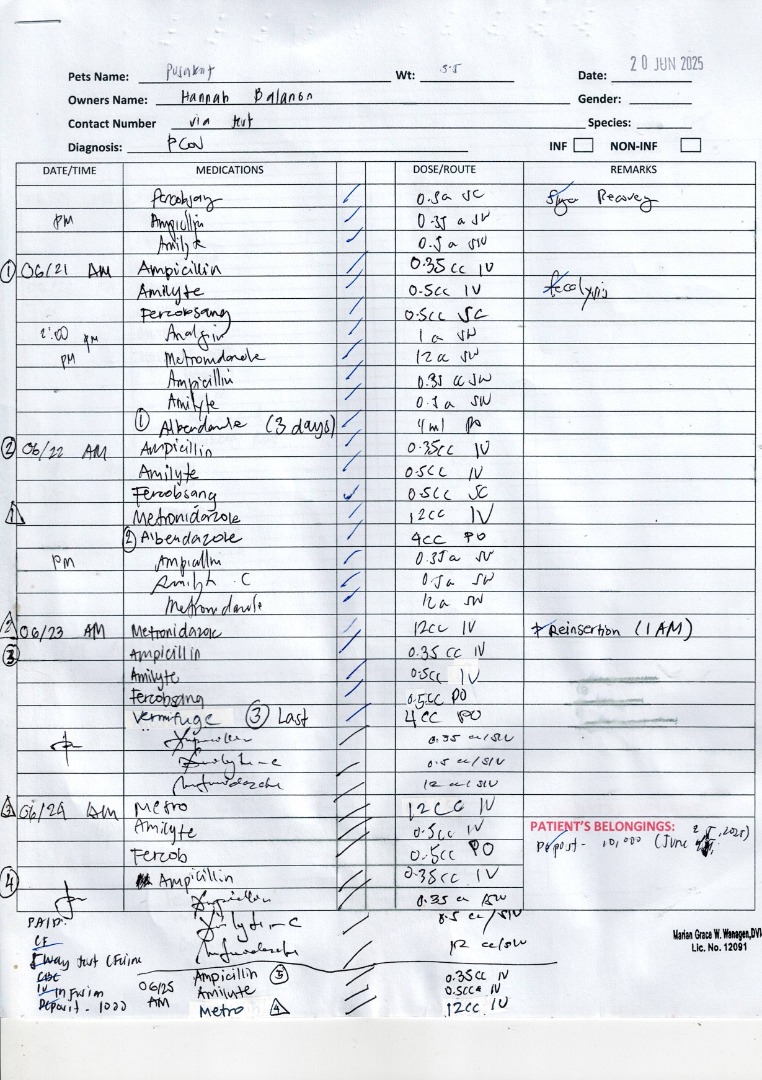 20 JUN 2025
Pets Name: Wt: Date:
Owners Name: Hannah Balanon Gender:
Contact Number via text Species:
Diagnosis: PCOV INF NON-INF
DATE/TIME MEDICATIONS DOSE/ROUTE REMARKS
Fercobsang 0.5cc SC
PM Ampicillin 0.35 cc
Amilyte 0.5cc
① 06/21 AM Ampicillin 0.35cc IV
Amilyte 0.5cc IV fecalysis
Fercobsang 0.5cc SC
2:00 PM Analgin 1 cc
PM Metronidazole 12cc
Ampicillin 0.35 cc
Amilyte 0.5cc
① Albendazole (3 days) 4ml PO
② 06/22 AM Ampicillin 0.35cc IV
Amilyte 0.5cc IV
Fercobsang 0.5cc SC
1 Metronidazole 12cc IV
② Albendazole 4cc PO
PM Ampicillin 0.35cc
Amilyte C 0.5cc
Metronidazole 12cc
2 06/23 AM Metronidazole 12cc IV Reinsertion (1 AM)
③ Ampicillin 0.35 cc IV
Amilyte 0.5cc IV
Fercobsang 0.5cc PO
Vermifuge ③ Last 4cc PO
0.35 cc/
0.5 cc/
12 cc/
3 06/24 AM Metro 12CC IV
Amilyte 0.5cc IV
PATIENT'S BELONGINGS:
Fercob 0.5cc PO
Deposit - 10,000 (June 2025)
④ Ampicillin 0.35cc IV
0.35 cc
PAID: 0.5 cc/
CF 12 cc/
Marian Grace W. Wanagen, DVM
Lic. No. 12091
5 way test
CBC
IV Infusion
Deposit - 1000
06/25 AM Ampicillin ⑤ 0.35cc IV
Amilyte 0.5cc IV
Metro 4 12cc IV